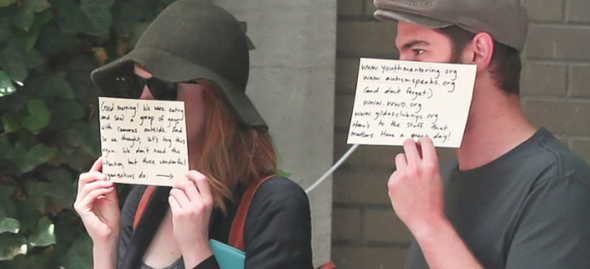 Good morning! We were eating
and saw a group of guys
with cameras outside. And
so we thought, let's try this
again. We don't need the
attention, but these wonderful
organizations do: →
www.youthmentoring.org
www.autismspeaks.org
(and don't forget:)
www.wwo.org
www.gildasclubnyc.org
Here's to the stuff that
matters. Have a great day!